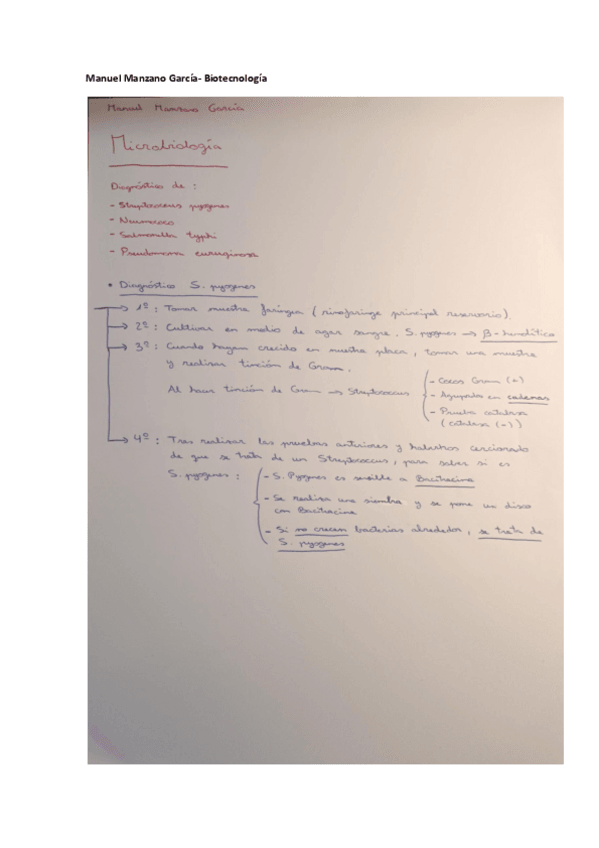 Manuel Manzano García- Biotecnología
Manuel Manzano García
Microbiología
Diagnóstico de :
- Streptococcus pyogenes
- Neumococo
- Salmonella typhi
- Pseudomona aeruginosa
• Diagnóstico S. pyogenes
→ 1º : Tomar muestra faríngea ( rinofaringe principal reservorio).
→ 2º : Cultivar en medio de agar sangre. S. pyogenes → β-hemolítico
→ 3º : Cuando hayan crecido en nuestra placa, tomar una muestra
y realizar tinción de Gram.
Al hacer tinción de Gram → Streptococcus
- Cocos Gram (+)
- Agrupados en cadenas
- Prueba catalasa
( catalasa (-) )
→ 4º : Tras realizar las pruebas anteriores y habernos cerciorado
de que se trata de un Streptococcus, para saber si es
S. pyogenes :
- S. Pyogenes es sensible a Bacitracina
- Se realiza una siembra y se pone un disco
con Bacitracina
- Si no crecen bacterias alrededor, se trata de
S. pyogenes